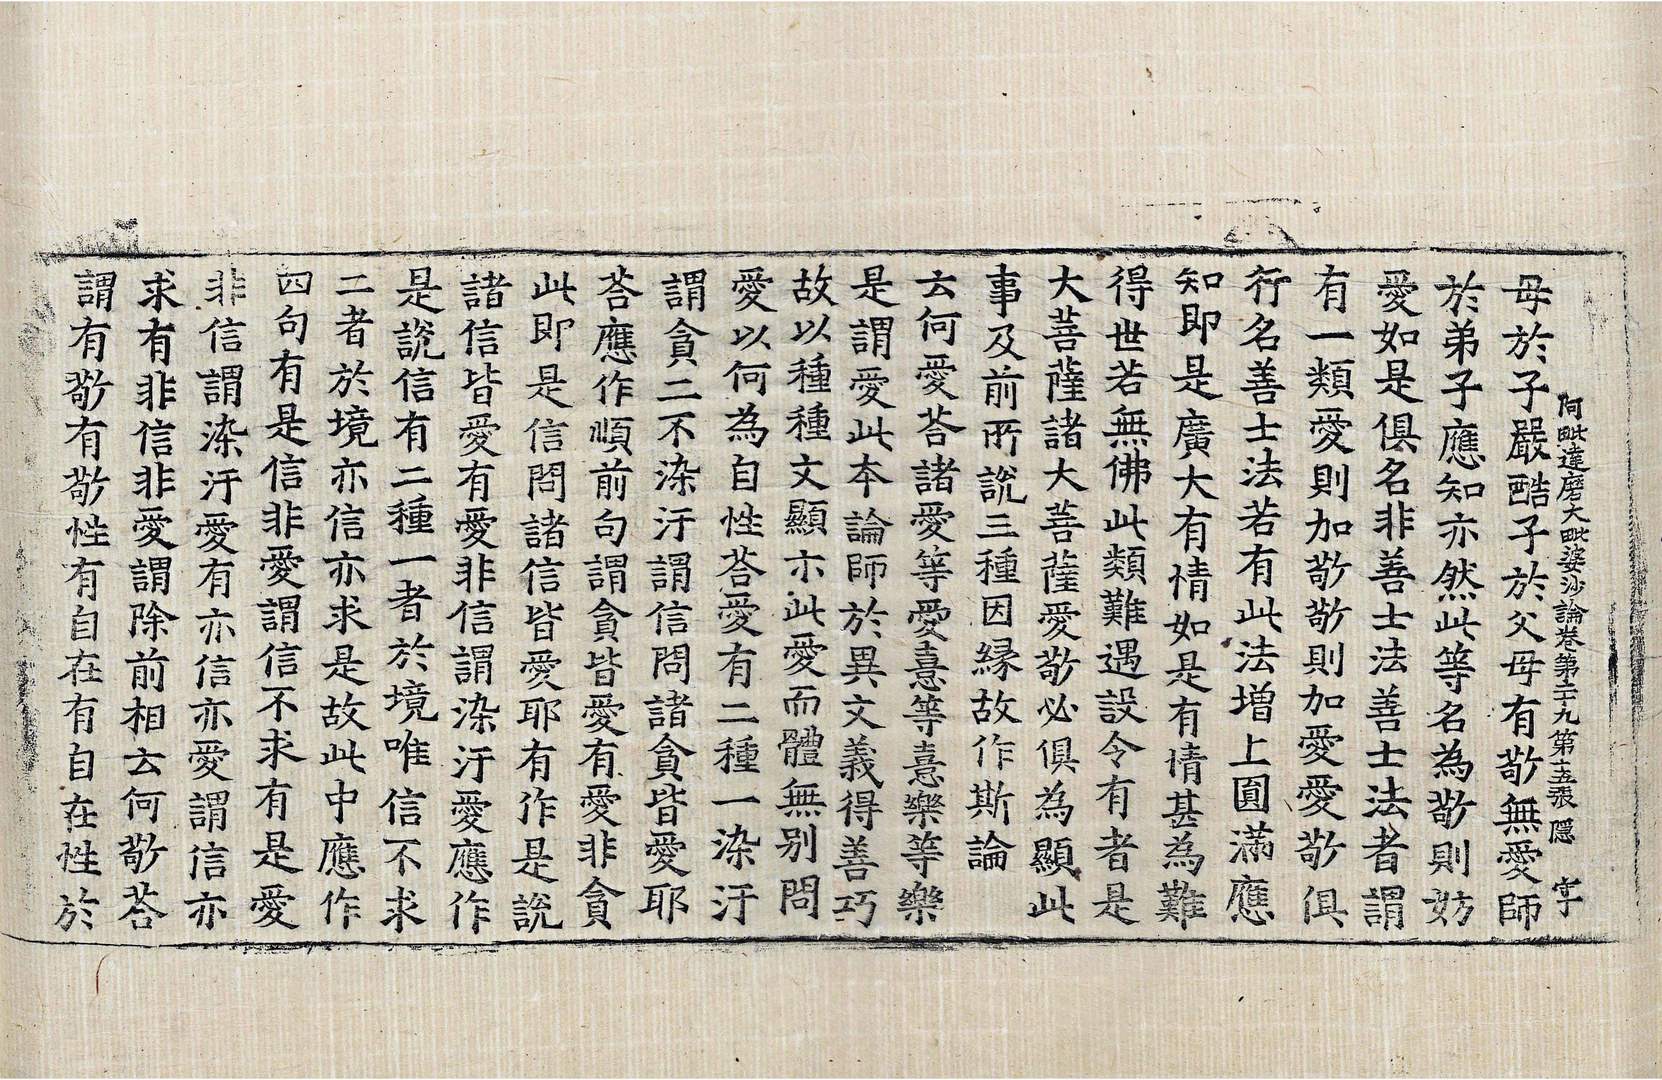 阿毗達磨大毗婆沙論卷第二十九第十五張 隱 守
母於子嚴酷子於父母有敬無愛師
於弟子應知亦然此等名為敬則妨
愛如是俱名非善士法善士法者謂
有一類愛則加敬敬則加愛愛敬俱
行名善士法若有此法增上圓滿應
知即是廣大有情如是有情甚為難
得世若無佛此類難遇設令有者是
大菩薩諸大菩薩愛敬必俱為顯此
事及前所說三種因緣故作斯論
云何愛荅諸愛等愛憙等憙樂等樂
是謂愛此本論師於異文義得善巧
故以種種文顯示此愛而體無別問
愛以何為自性荅愛有二種一染汙
謂貪二不染汙謂信問諸貪皆愛耶
荅應作順前句謂貪皆愛有愛非貪
此即是信問諸信皆愛耶有作是說
諸信皆愛有愛非信謂染汙愛應作
是說信有二種一者於境唯信不求
二者於境亦信亦求是故此中應作
四句有是信非愛謂信不求有是愛
非信謂染汙愛有亦信亦愛謂信亦
求有非信非愛謂除前相云何敬荅
謂有敬有敬性有自在有自在性於